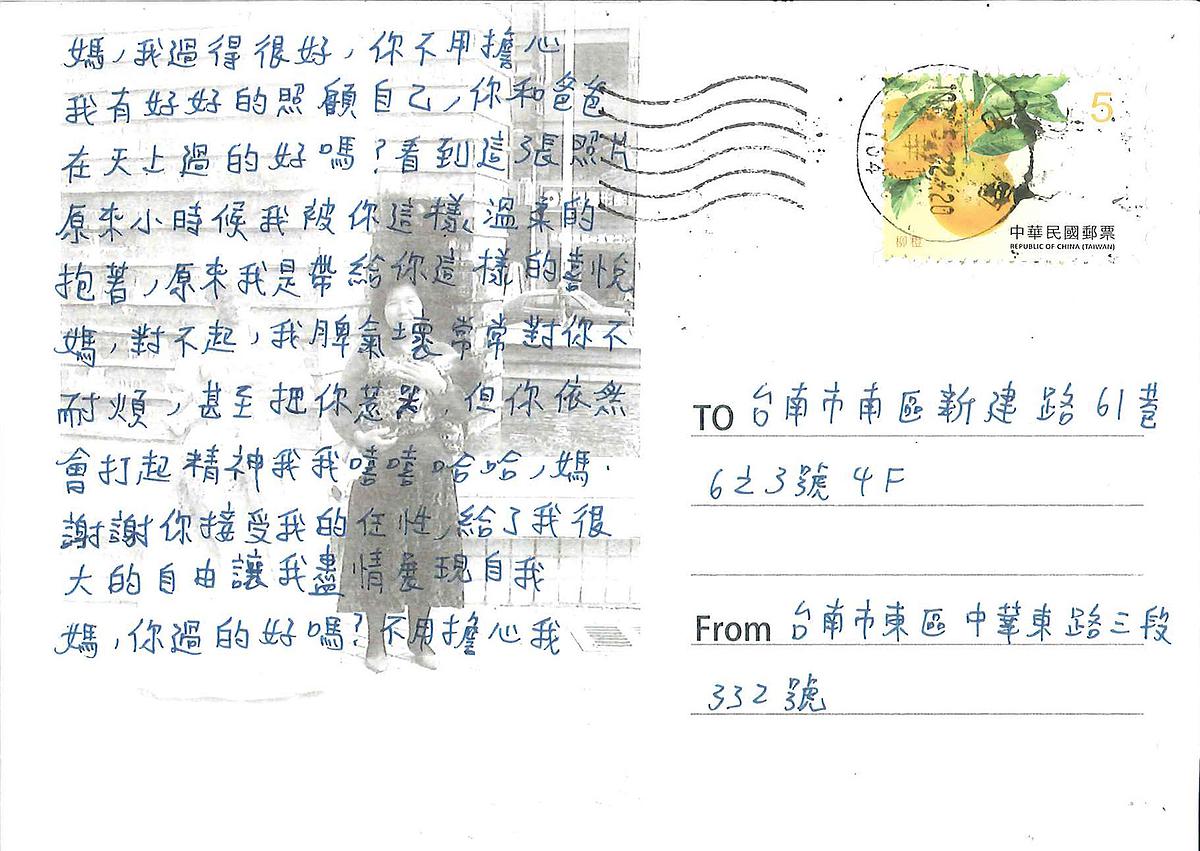 媽，我過得很好，你不用擔心
我有好好的照顧自己，你和爸爸
在天上過的好嗎？看到這張照片
原來小時候我被你這樣溫柔的
抱著，原來我是帶給你這樣的喜悅
媽，對不起，我脾氣壞常常對你不
耐煩，甚至把你惹哭，但你依然
會打起精神我我嘻嘻哈哈，媽．
謝謝你接受我的任性，給了我很
大的自由讓我盡情展現自我
媽，你過的好嗎？不用擔心我
5
柳橙
中華民國郵票
REPUBLIC OF CHINA (TAIWAN)
TO 台南市南區新建路61巷
6之3號4F
From 台南市東區中華東路三段
332號